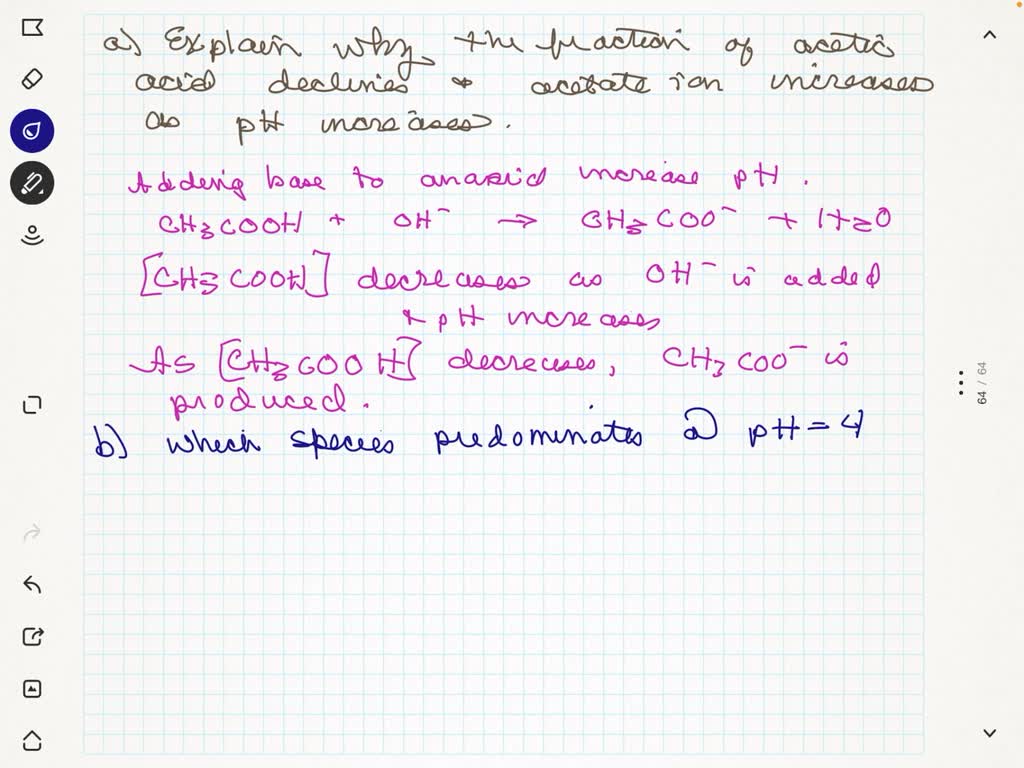 a) Explain why the fraction of acetic
acid declines & acetate ion increases
as pH increases.
Adding base to an acid increase pH.
CH3COOH + OH⁻ → CH3COO⁻ + H2O
[CH3COOH] decreases as OH⁻ is added
& pH increases
As [CH3COOH] decreases, CH3COO⁻ is
produced.
b) which species predominates @ pH = 4
64 / 64